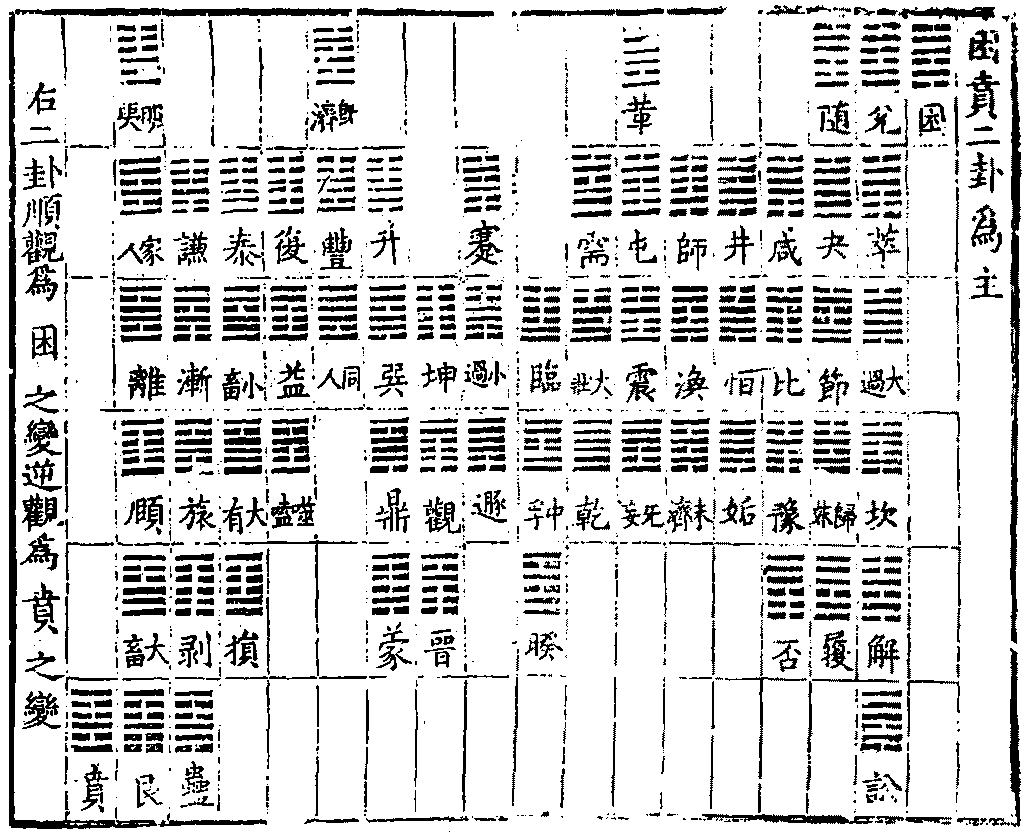 困賁二卦爲主
困
兌
萃
大過
坎
解
訟
随
夬
節
歸妹
履
咸
比
豫
否
井
恒
姤
師
渙
未濟
革
屯
震
无妄
需
大壯
乾
臨
中孚
睽
蹇
小過
遯
坤
觀
晋
升
巽
鼎
蒙
既濟
豐
同人
復
益
噬嗑
泰
小畜
大有
損
謙
漸
旅
剥
蠱
明夷
家人
離
頤
大畜
艮
賁
右二卦順觀爲困之變逆觀爲賁之變